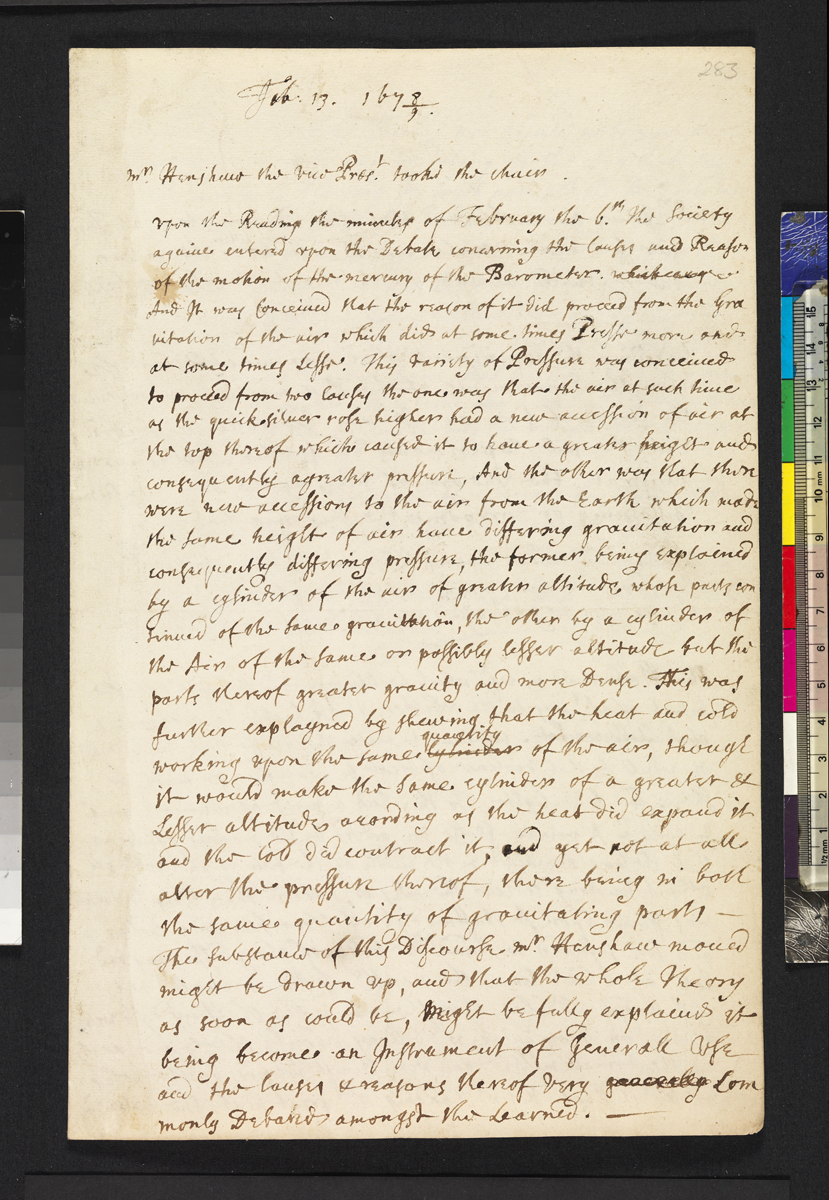 283
Feb. 13. 167 8/9.
mr. Henshaw the vice Prest. tooke the chair.
vpon the Reading the minutes of February the 6.th the Society
againe entered vpon the Debate concerning the Causes and Reason
of the motion of the mercury of the Barometer.
And It was Conceiued that the reason of it did proceed from the Gra
uitation of the air which did at some times Presse more and
at some times Lesse. This variety of Pressure was conceiued
to proceed from two Causes the one was that the air at such time
as the quicksilver rose higher had a new accession of air at
the top thereof which caused it to haue a greater height and
consequently a greater pressure, And the other was that there
were new accessions to the air from the Earth which made
the same height of air haue differing grauitation and
consequently differing pressure, the former being explained
by a cylinder of the air of greater altitude whose parts con
tinued of the same grauitation, the other by a cylinder of
the Air of the same or possibly lesser altitude but the
parts thereof greater grauity and more Dense. This was
further explayned by shewing that the heat and cold
quantity
working vpon the same cylinder of the air, though
it would make the same cylinder of a greater &
Lesser altitude acording as the heat did expand it
and the Cold did contract it, and yet not at all
alter the pressure thereof, there being in both
the same quantity of grauitating parts —
The substance of this Discourse mr Henshaw moued
might be drawn vp, and that the whole Theory
as soon as could be, might be fully explained it
being become an Instrument of Generall Vse
and the Causes & reasons thereof very generally Com
monly Debated amongst the Learned. —